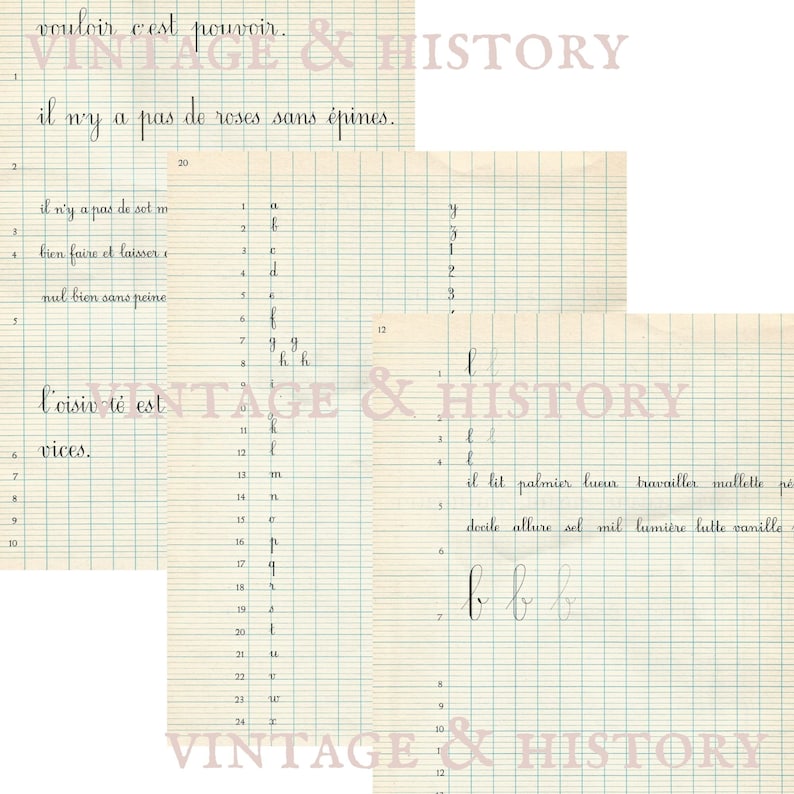 vouloir c'est pouvoir.
VINTAGE & HISTORY
1
il n'y a pas de roses sans épines.
2
3
il n'y a pas de sot m
4
bien faire et laisser
nul bien sans peine
5
l'oisiveté est
6
vices.
7
8
9
10
20
1 a y
2 b z
3 c 1
4 d 2
5 e 3
6 f
7 g g
8 h h
9 i
10 j
11 k
12 l
13 m
14 n
15 o
16 p
17 q
18 r
19 s
20 t
21 u
22 v
23 w
24 x
VINTAGE & HISTORY
12
1 l l
2
3 l l
4 l
5 il lit palmier lueur travailler mallette
docile allure sel mil lumière lutte vanille
6
7 b b b
8
9
10
11
12
VINTAGE & HISTORY